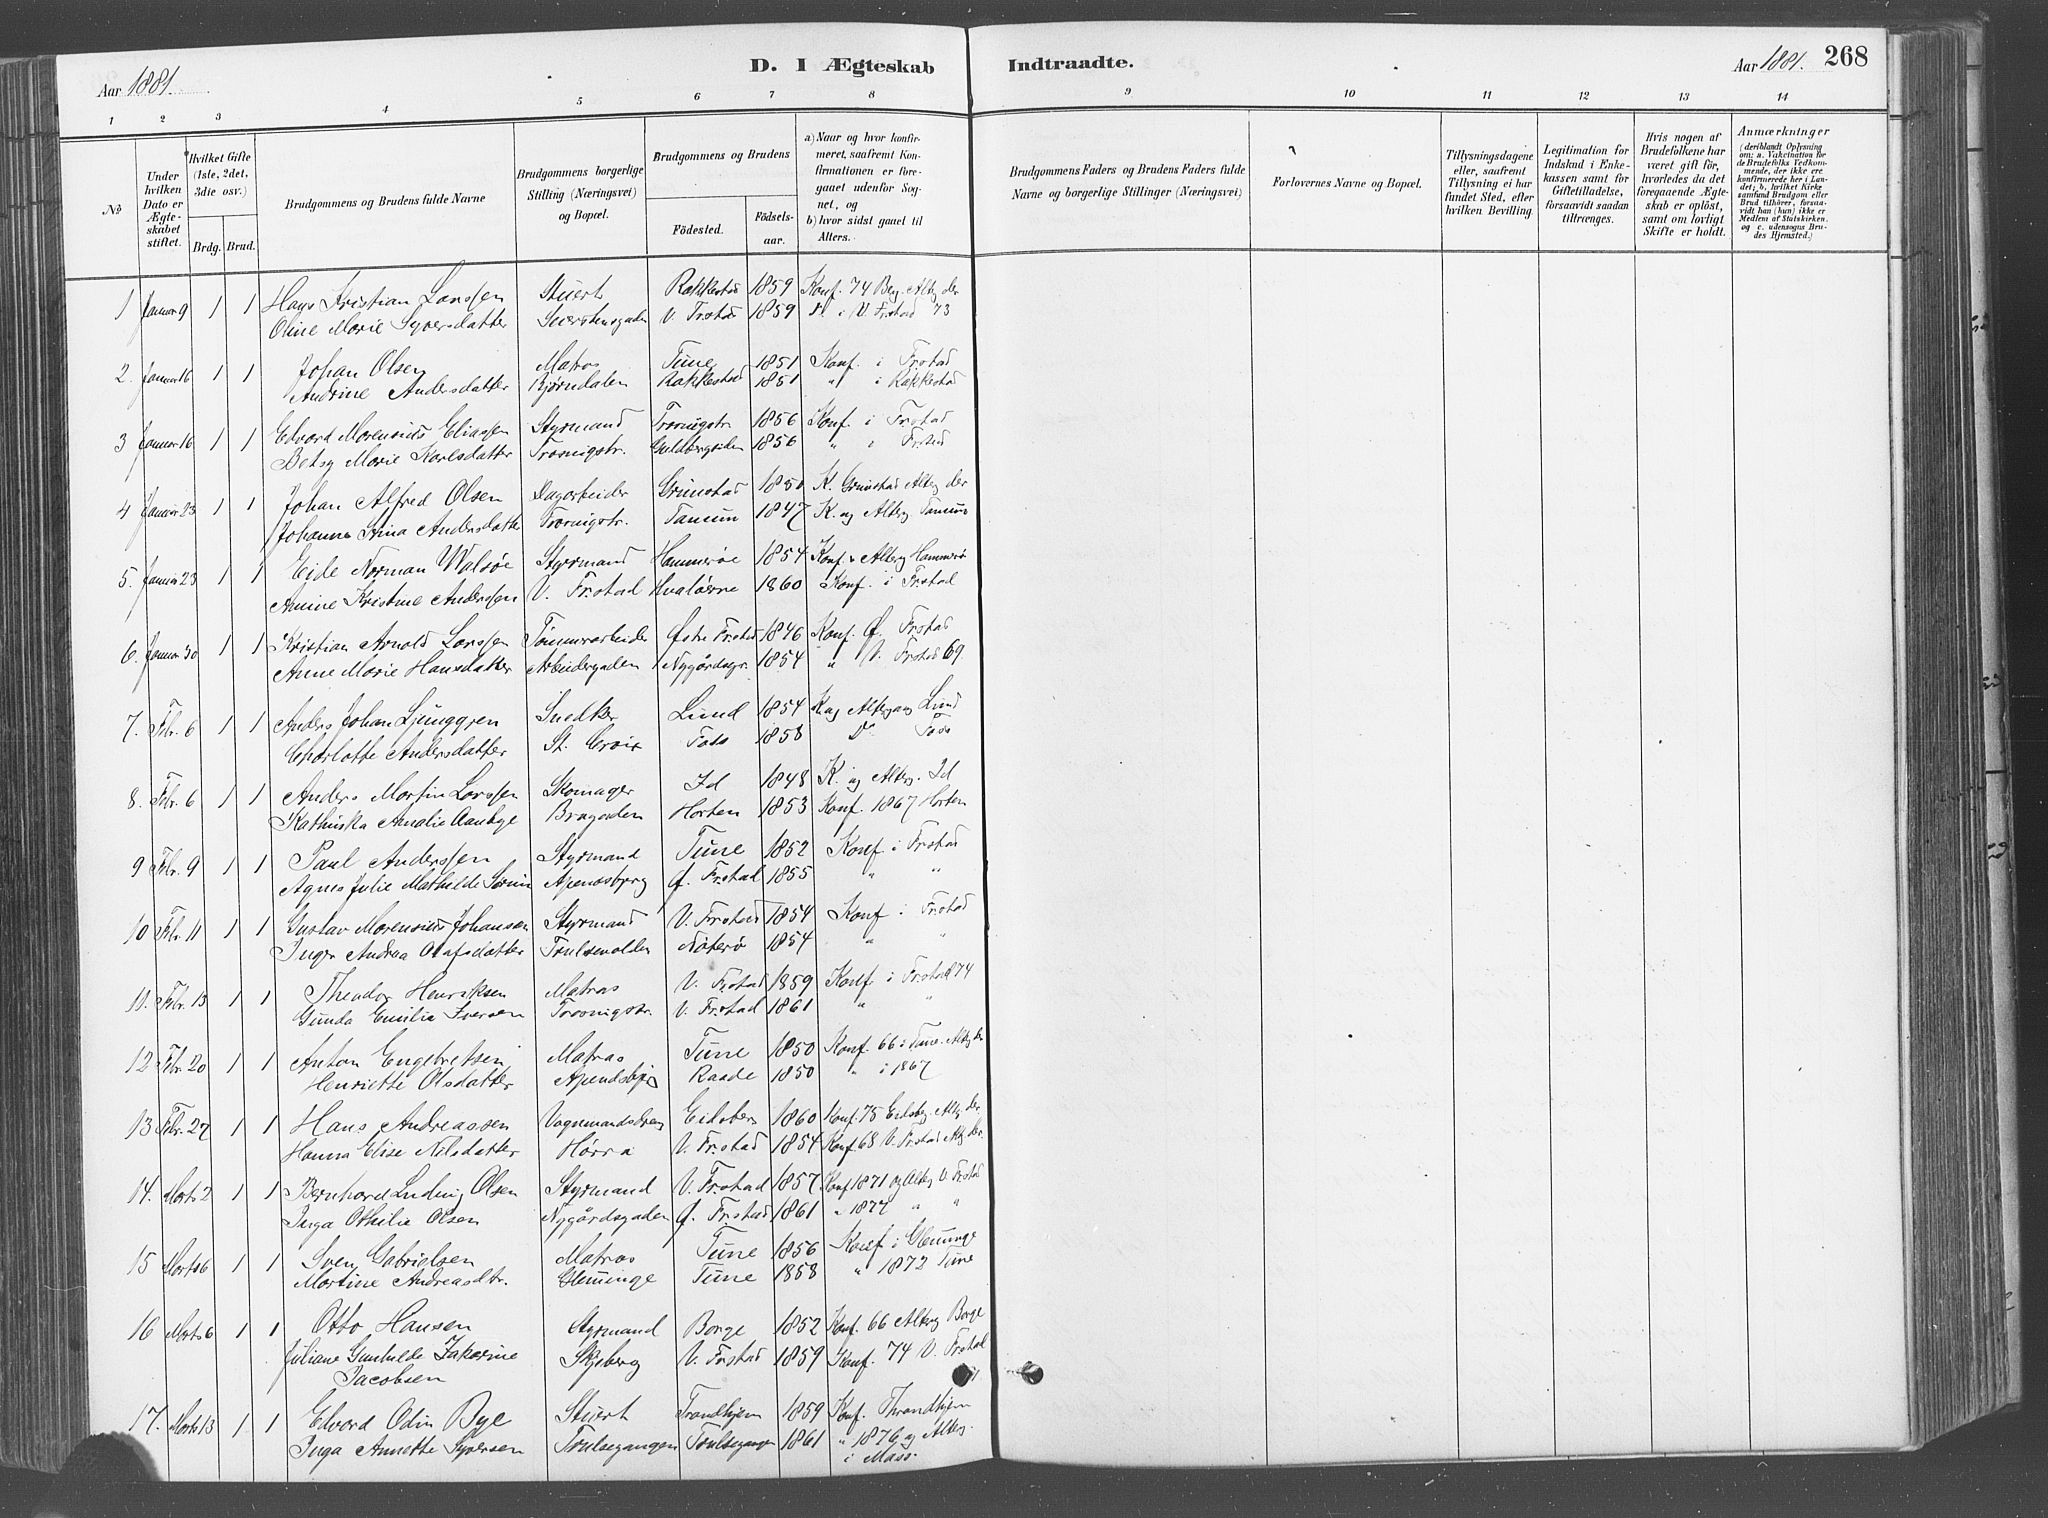 Aar 1881.
D. I Ægteskab
Indtraadte.
Aar 1881. 268
1 2 3 4 5 6 7 8 9 10 11 12 13 14
No
Under hvilken Dato er Ægteskabet stiftet.
Hvilket Gifte (1ste, 2det, 3die osv.)
Brdg. Brud.
Brudgommens og Brudens fulde Navne
Brudgommens borgerlige Stilling (Næringsvei) og Bopæl.
Brudgommens og Brudens
Födested.
Födselsaar.
a) Naar og hvor konfirmeret, saafremt Konfirmationen er foregaaet udenfor Sognet, og
b) hvor sidst gaaet til Alters.
Brudgommens Faders og Brudens Faders fulde Navne og borgerlige Stillinger (Næringsvei)
Forlovernes Navne og Bopæl.
Tillysningsdagene eller, saafremt Tillysning ei har fundet Sted, efter hvilken Bevilling.
Legitimation for Indskud i Enkekassen samt for Giftetilladelse, forsaavidt saadan tiltrænges.
Hvis nogen af Brudefolkene har været gift för, hvorledes da det foregaaende Ægteskab er oplöst, samt om lovligt Skifte er holdt.
Anmærkninger
(deriblandt Oplysning om: a. Vakcination for de Brudefolks Vedkommende, der ikke ere konfirmerede her i Landet; b. hvilket Kirkesamfund Brudgom eller Brud tilhörer, forsaavidt han (hun) ikke er Medlem af Statskirken, og c. udensogns Brudes Hjemsted.)
1 Januar 9 1 1 Hans Kristian Larssen Stuert Rakkestad 1859 Konf. 74 Altg der
Oline Marie Syversdatter V. Frstad 1859 i V. Frstad 73
2. Januar 16 1 1 Johan Olsen Matros Tune 1851 Konf. i Frstad
Andrine Andersdatter Bjørndalen Rakkestad 1851 " i Rakkestad
3 Januar 16 1 1 Edvard Morensius Eliassen Styrmand Trosvigstr. 1856 Konf. i Frstad
Betsy Marie Karlsdatter Trosvigstr. Guldbergsiden 1856 " i Frstad
4 Januar 23 1 1 Johan Alfred Olsen Dagarbeider Grimstad 1850 K. Grimstad Altg der
Johanne Stina Andersdatter Trosvigstr. Tanum 1847 K. og Alterg Tanum
5. Januar 23 1 1 Eide Norman Walsøe Styrmand Hammerøe 1854 Konf. Alterg Hammerø
Amine Kristine Anderssen V. Frstad Hvaløerne 1860 Konf. i Frstad
6. Januar 30 1 1 Kristian Arnold Larssen Tømmerarbeider Østre Frstad 1846 Konf. Ø. Frstad
Anne Marie Hansdatter Arbeidergaden Nygårdsgr. 1854 " V. Frstad 69.
7. Febr. 6 1 1 Anders Johan Ljunggren Snedker Lund 1854 K og Altergang Lund
Charlotte Andersdatter St. Croix Foss 1858 Do Foss
8. Febr. 6 1 1 Anders Martin Larssen Skomager Id 1848 K. og Alterg. Id
Kathinka Amalie Aanbye Bragaden Horten 1853 Konf. 1867 Horten
9 Febr. 9 1 1 Paul Anderssen Styrmand Tune 1852 Konf. i Frstad
Agnes Julie Mathilde Apenesbjerg Ø. Frstad 1855 " "
10 Febr. 11 1 1 Gustav Morensius Johansen Styrmand V. Frstad 1854 Konf i Frstad
Inger Andrea Olafsdatter Trulsevolden Nøterø 1854 " "
11. Febr. 13 1 1 Theodor Henriksen Matros V. Frstad 1859 Konf i Frstad 74
Gunda Emilie Iversen Trosvigstr. V. Frstad 1861 " "
12 Febr. 20 1 1 Anton Engebretsen Matros Tune 1850 Konf 66 i Tune. Altg der
Henriette Olsdatter Raade 1850 " i 1867
13 Febr. 27 1 1 Hans Andreassen Vognmandsdreng Eidsberg 1860 Konf. 75 Eidsbg. Altg der.
Hanna Elise Nilsdatter V. Frstad 1854 Konf 68 V. Frstad Altg der.
14. Marts 2 1 1 Bernhard Ludvig Olsen Styrmand V. Frstad 1857 Konf 1871 og Altg V. Frstad
Inga Othilie Olsen Nygårdsgaden Ø. Frstad 1861 " 1877 " "
15 Marts 6 1 1 Sven Gabrielsen Matros Tune 1856 Konf i Glemminge
Martine Andreasdtr. Glemminge Tune 1858 " 1872 Tune
16 Marts 6 1 1 Otto Hansen Styrmand Borge 1852 Konf. 66 Alterg Borge
Juliane Gunhilde Jakobine Jacobsen Skjeberg V. Frstad 1859 Konf. 74 V. Frstad
17. Marts 13 1 1 Edvard Odin Bye Stuert Trondhjem 1859 Konf. Throndhjem
Inga Annette Syversen Trulsegangen Trulsegangen 1861 " 1876 og Alterg. i Moss.